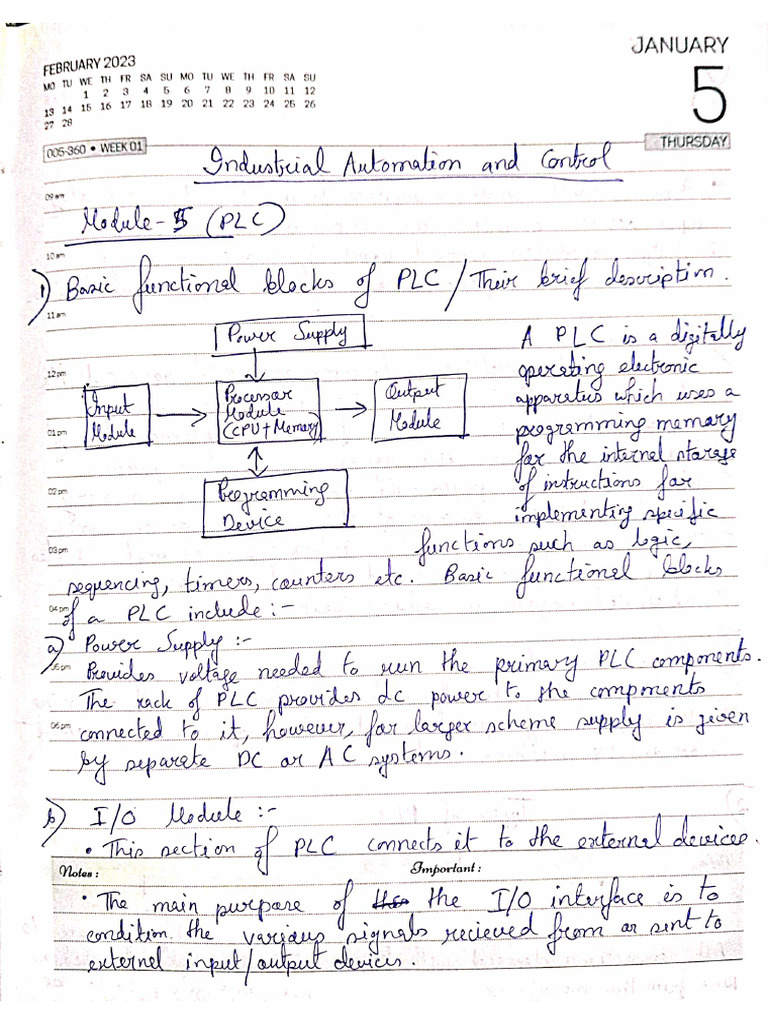 FEBRUARY 2023
MO TU WE TH FR SA SU MO TU WE TH FR SA SU
1 2 3 4 5 6 7 8 9 10 11 12
13 14 15 16 17 18 19 20 21 22 23 24 25 26
27 28
JANUARY
5
THURSDAY
005-360 • WEEK 01
Industrial Automation and Control
09 am
Module - 5 (PLC)
10 am
1) Basic functional blocks of PLC / Their brief description.
11 am
Power Supply
12 pm
Input Module
01 pm
Processor Module (CPU + Memory)
Output Module
02 pm
Programming Device
A PLC is a digitally
operating electronic
apparatus which uses a
programming memory
for the internal storage
of instructions for
implementing specific
03 pm
functions such as logic,
sequencing, timers, counters etc. Basic functional blocks
04 pm
of a PLC include :-
a) Power Supply :-
05 pm
Provides voltage needed to run the primary PLC components.
The rack of PLC provides dc power to the components
06 pm
connected to it, however, for larger scheme supply is given
by separate DC or AC systems.
b) I/O Module :-
• This section of PLC connects it to the external devices.
Notes :
Important :
• The main purpose of the the I/O interface is to
condition the various signals recieved from or sent to
external input/output devices.